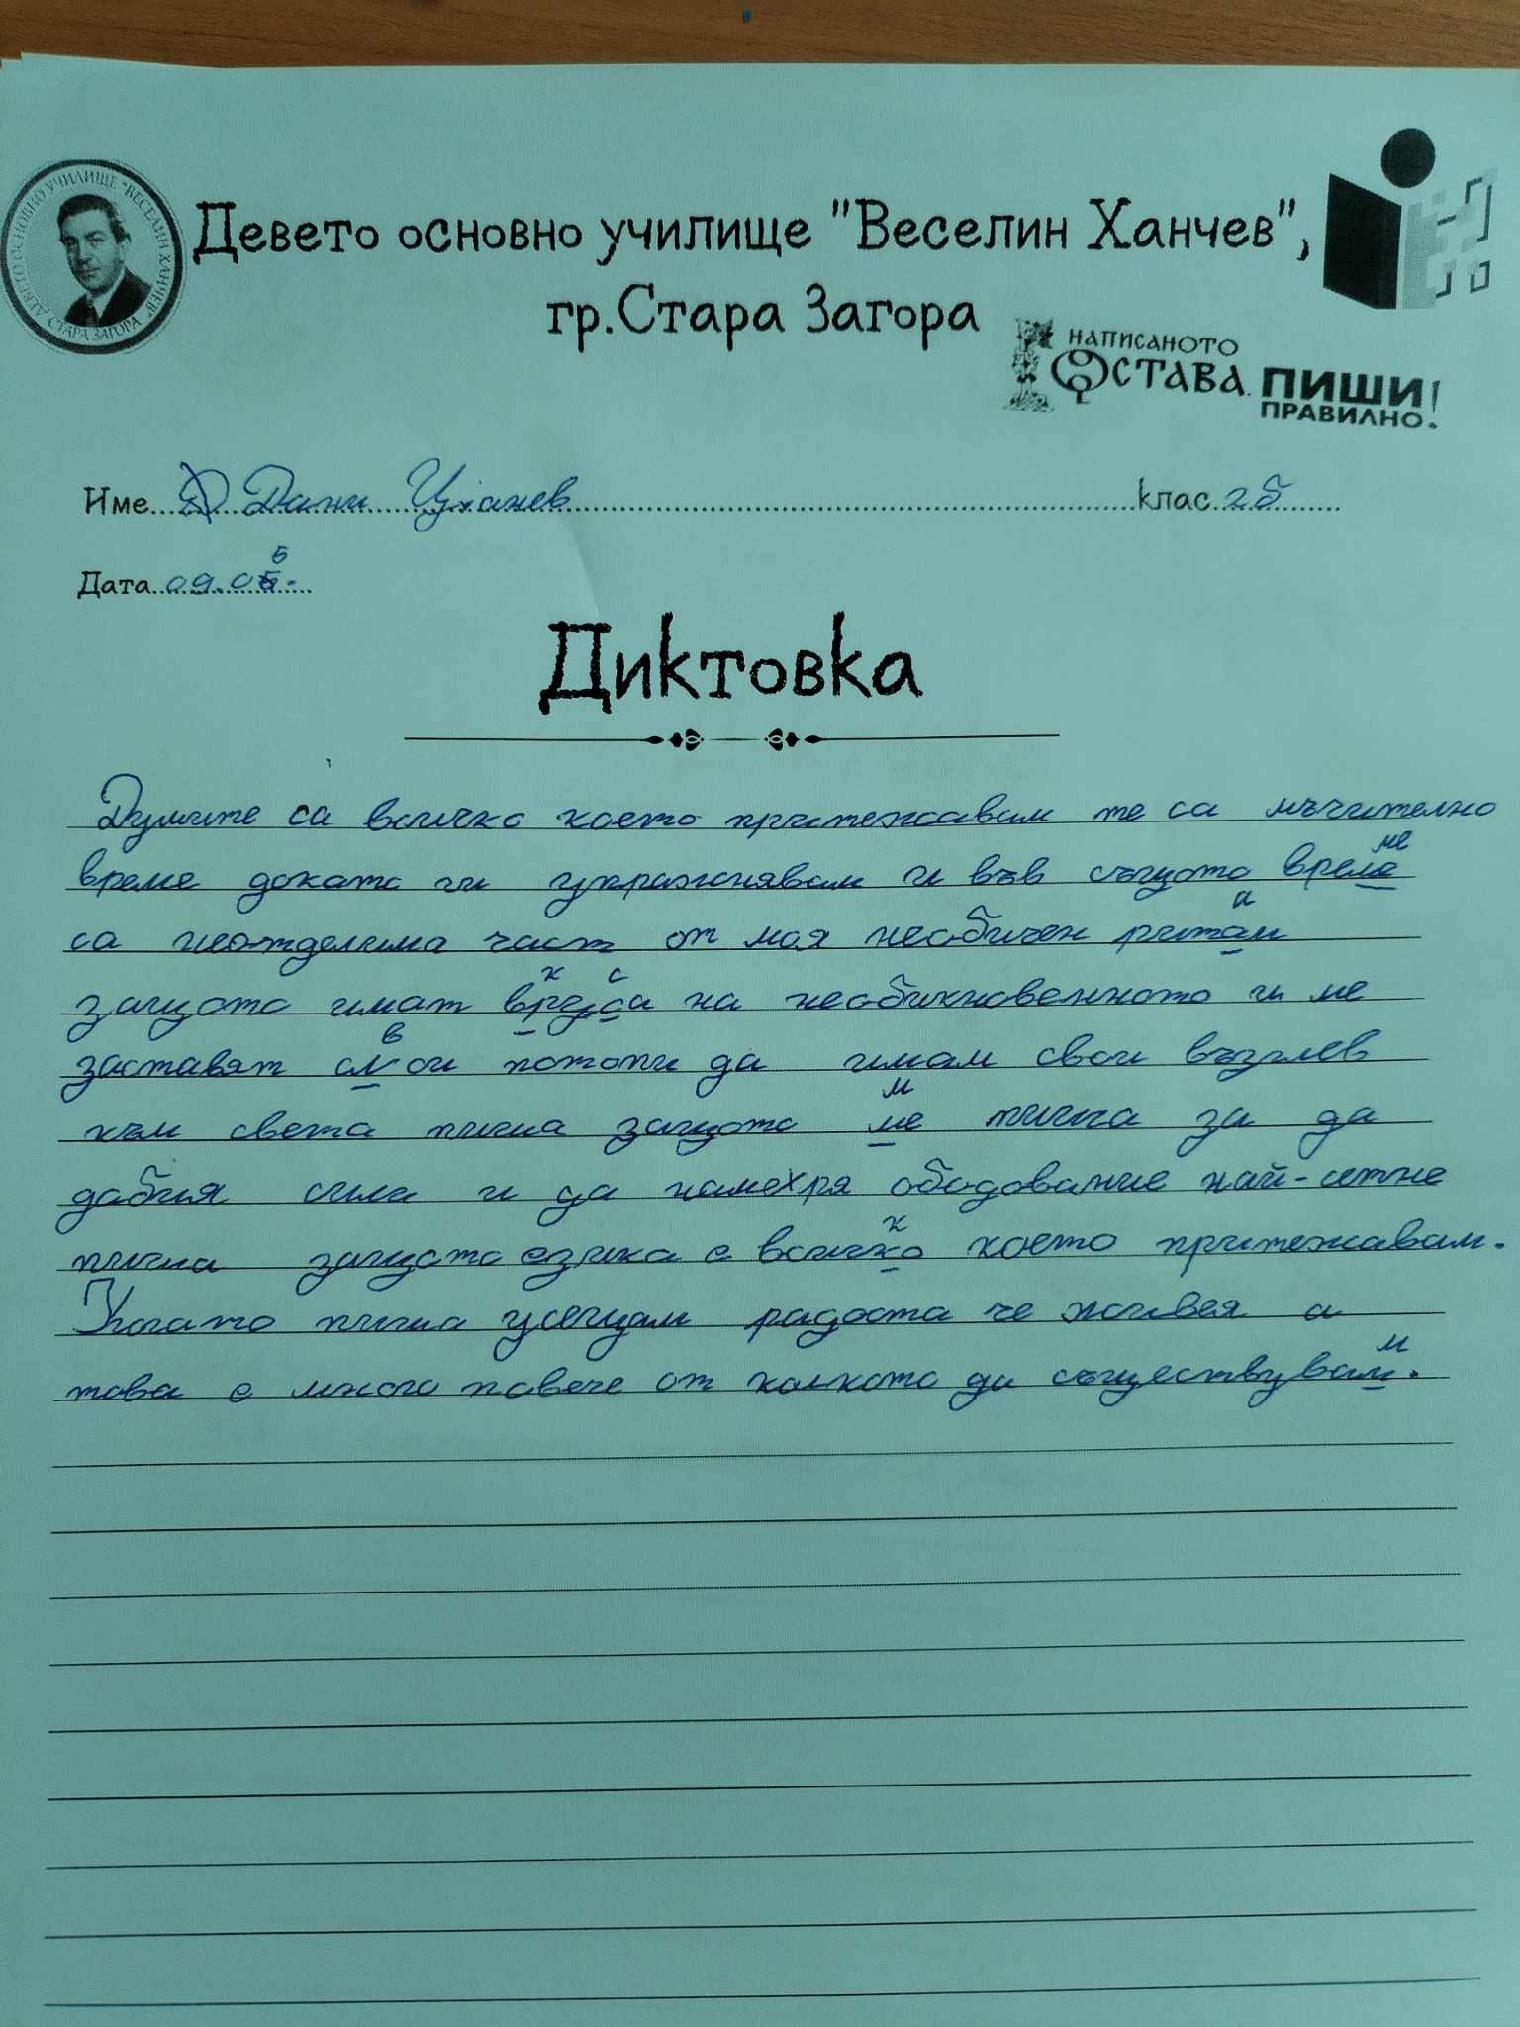 ДЕВЕТО ОСНОВНО УЧИЛИЩЕ "ВЕСЕЛИН ХАНЧЕВ" СТАРА ЗАГОРА
Девето основно училище "Веселин Ханчев",
гр.Стара Загора
НАПИСАНОТО
ОСТАВА. ПИШИ
ПРАВИЛНО!
Име Дани Цуланев клас 2б
Дата 09.05.
Диктовка
Думите са всичко което притежавам те са мъчително
време докато ги упражнявам и във същото време
са неотделима част от моя необичен ритам
защото имат вкуса на необикновенното и ме
заставят свои потопи да имам свои възглев
към света пиша защото ме пиша за да
дабия сила и да намехря ободование най-сетне
пиша защото езика е всичко което притежавам.
Когато пиша усещам радоста че живея а
това е много повече от колкото да съществувам.